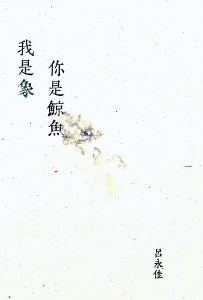 我是象
你是鯨魚
呂永佳